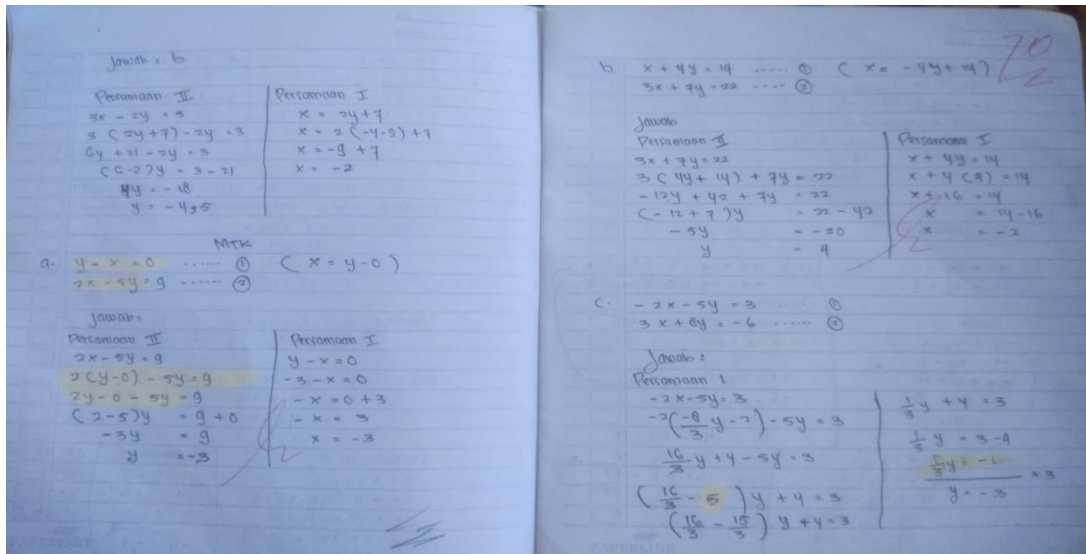 Jawab : b
Persamaan II
3x - 2y = 3
3 (2y+7) - 2y = 3
6y + 21 - 2y = 3
(6-2)y = 3 - 21
4y = -18
y = -4,5
Persamaan I
x = 2y + 7
x = 2 (-4-5) + 7
x = -9 + 7
x = -2
MTK
a. y - x = 0 ...... ① ( x = y-0 )
2x - 5y = 9 ...... ②
Jawab :
Persamaan II
2x - 5y = 9
2(y-0) - 5y = 9
2y - 0 - 5y = 9
(2-5)y = 9 + 0
-3y = 9
y = -3
Persamaan I
y - x = 0
-3 - x = 0
- x = 0 + 3
- x = 3
x = -3
70
b x + 4y = 14 ..... ① ( x = -4y + 14 )
3x + 7y = 22 ..... ②
Jawab
Persamaan II
3x + 7y = 22
3 (4y + 14) + 7y = 22
-12y + 42 + 7y = 22
(-12 + 7)y = 22 - 42
-5y = -20
y = 4
Persamaan I
x + 4y = 14
x + 4 (4) = 14
x + 16 = 14
x = 14 - 16
x = -2
c. -2x - 5y = 3 ...... ①
3x + 8y = -6 ..... ②
Jawab :
Persamaan 1
-2x - 5y = 3
-2(-8/3 y - 2) - 5y = 3
16/3 y + 4 - 5y = 3
(16/3 - 5) y + 4 = 3
(16/3 - 15/3) y + 4 = 3
1/3 y + 4 = 3
1/3 y = 3 - 4
1/3 y = -1
x 3
y = -3
PAPERLINE